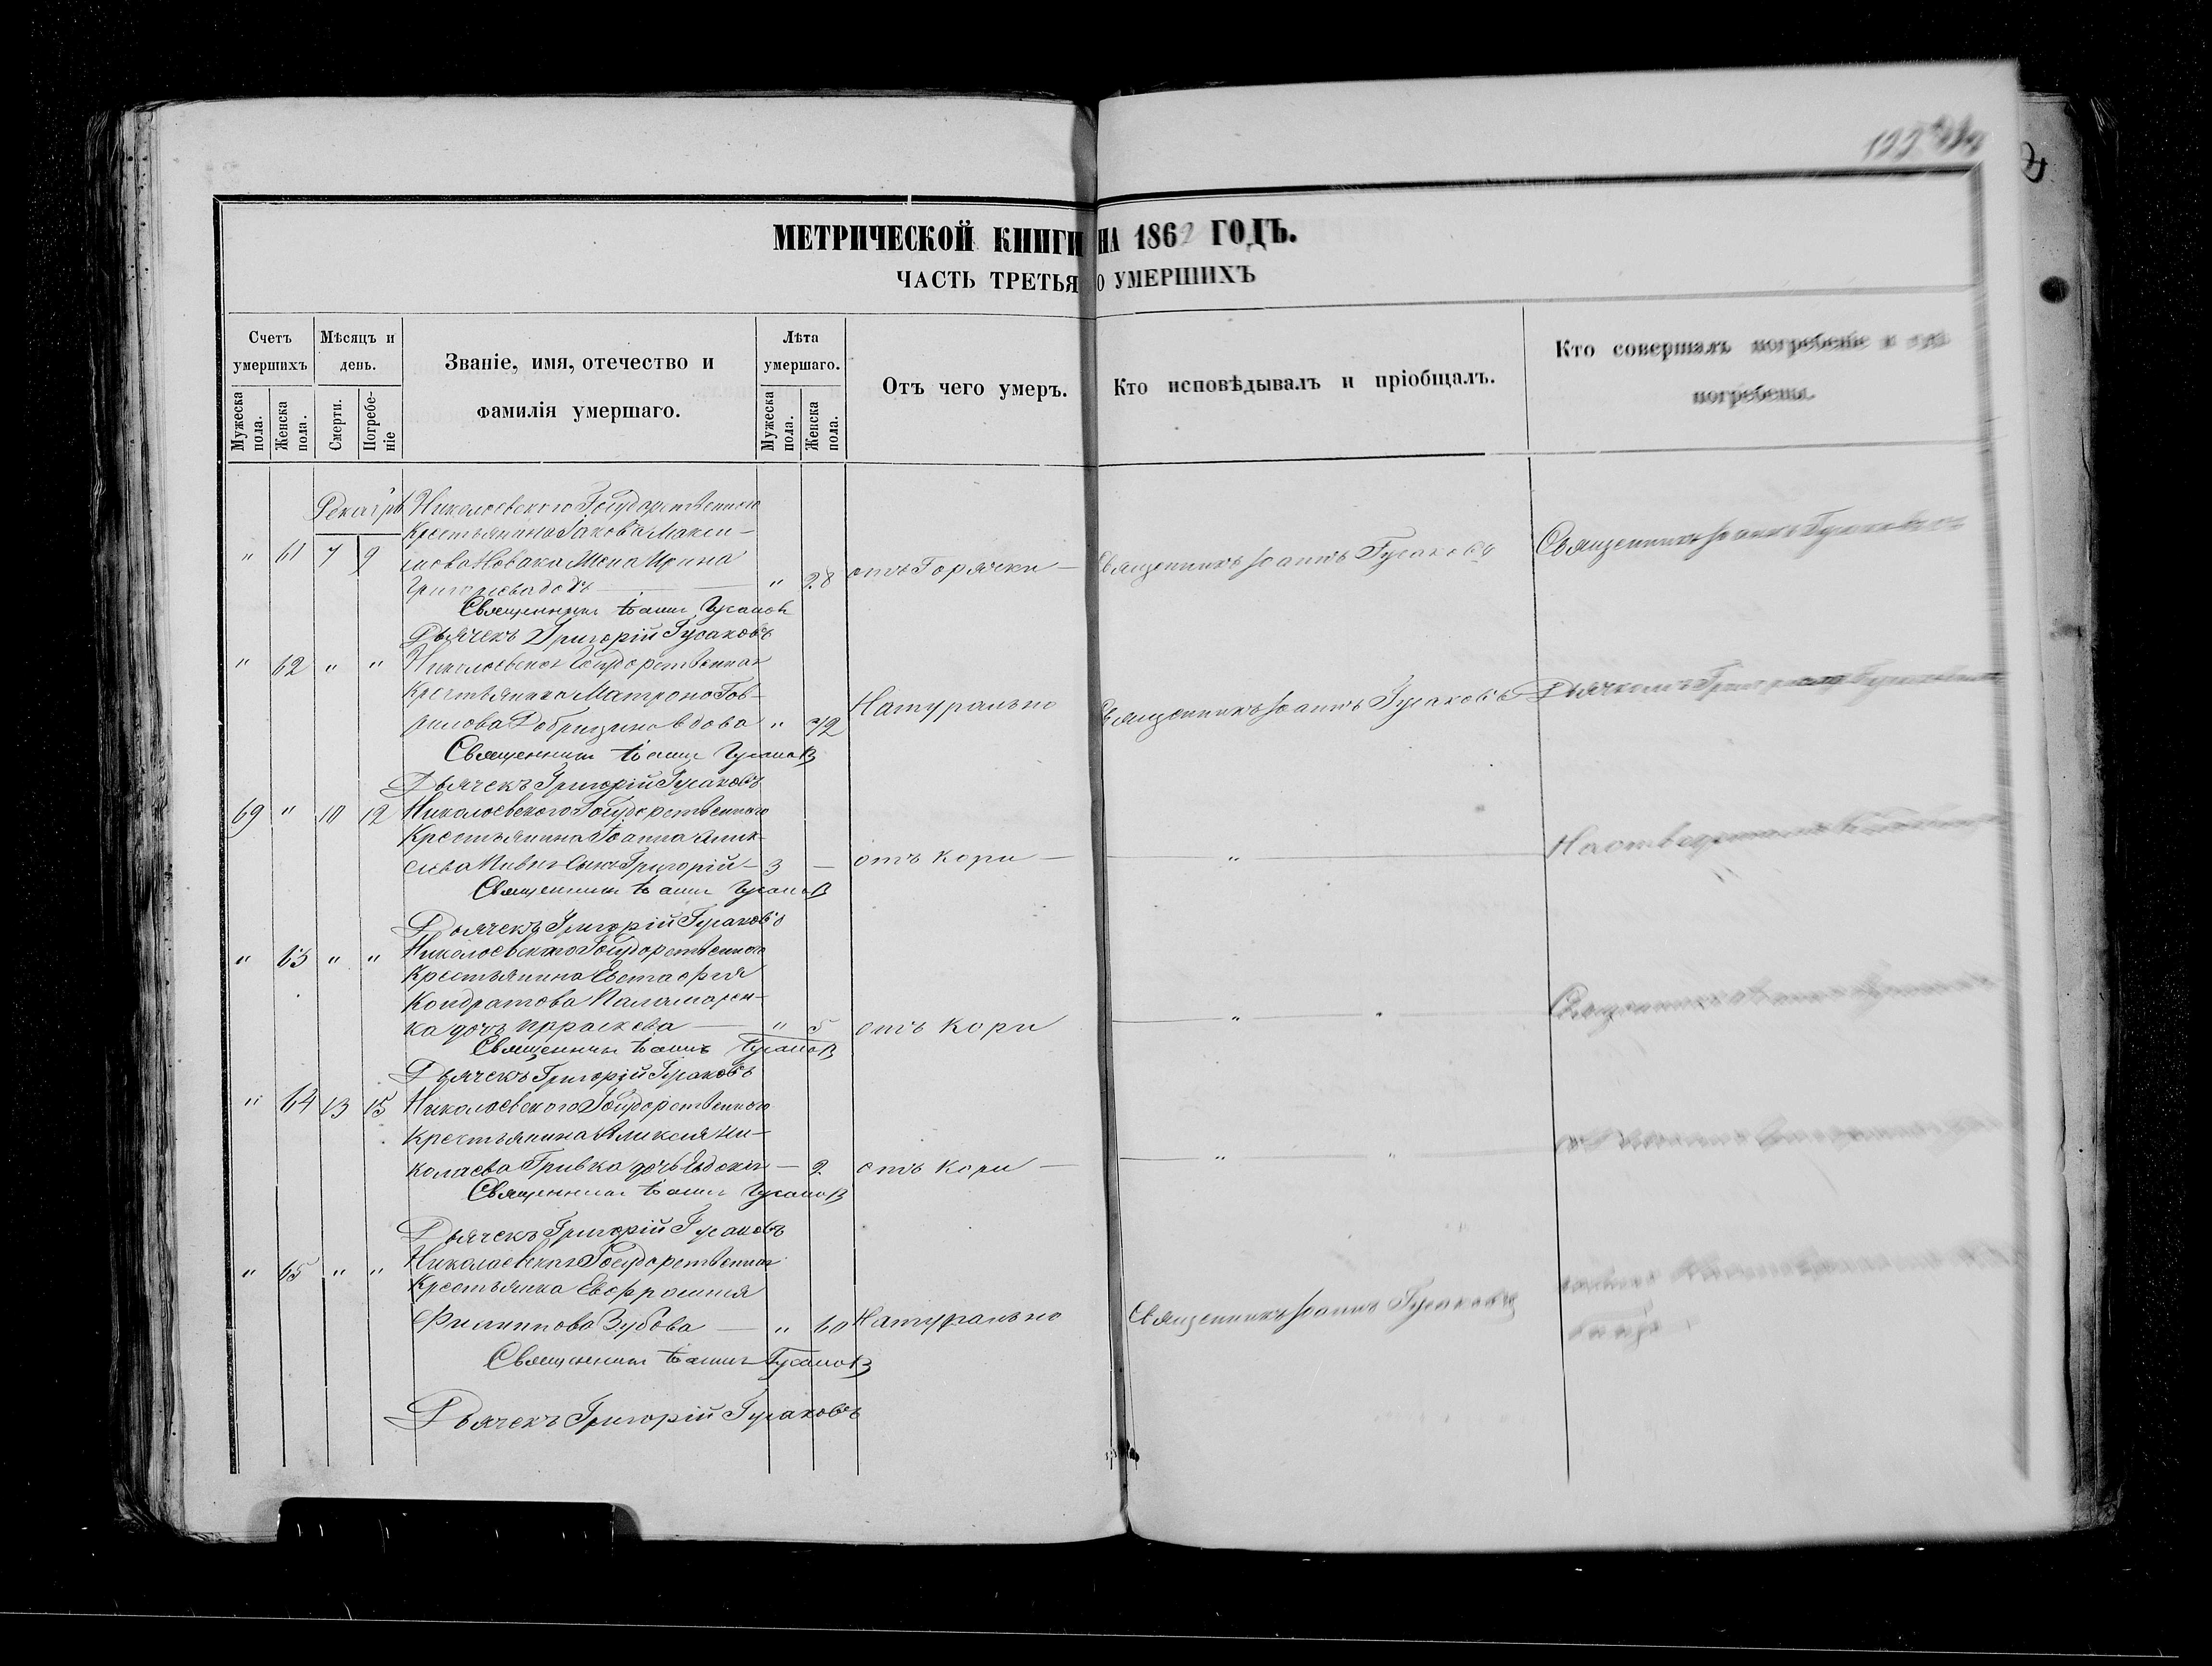 МЕТРИЧЕСКОЙ КНИГИ НА 1862 ГОДЪ.
ЧАСТЬ ТРЕТЬЯ О УМЕРШИХЪ
Счетъ умершихъ
Мѣсяцъ и день.
Званіе, имя, отечество и фамилія умершаго.
Лѣта умершаго.
Отъ чего умеръ.
Кто исповѣдывалъ и пріобщалъ.
Кто совершалъ погребеніе и гдѣ погребены.
Мужеска пола.
Женска пола.
Смерти.
Погребеніе
Мужеска пола.
Женска пола.
Декабрь
Николаевского Государственного
Крестьянина Іакова Макси-
" 61 7 9 мова Новака Жена Ирина
" 28 отъ Горячки — Священникъ Іоаннъ Гусаковъ Священникъ Іоаннъ Гусаковъ
Священникъ Іоаннъ Гусаковъ
Дьячекъ Григорій Гусаковъ
" 62 " " Николаевская Государственная
Крестьянка Матрона Гав-
рилова Добрицина вдова " 72 Натурально Священникъ Іоаннъ Гусаковъ Дьячкомъ
Священникъ Іоаннъ Гусаковъ
Дьячекъ Григорій Гусаковъ
69 " 10 12 Николаевского Государственного
Крестьянина Іоанна Алек-
сѣева Пивня Сынъ Григорій — 3 — отъ Кори — " На отведенномъ Кладбищѣ
Священникъ Іоаннъ Гусаковъ
Дьячекъ Григорій Гусаковъ
" 63 " " Николаевского Государственного
Крестьянина Евстафія
Кондратова Паламарен-
ка дочь Параскева — " 5 отъ Кори " "
Священникъ Іоаннъ Гусаковъ
Дьячекъ Григорій Гусаковъ
" 64 13 15 Николаевского Государственного
Крестьянина Алексія Ни-
колаева Гривка дочь Евдокія — 2 отъ Кори — " "
Священникъ Іоаннъ Гусаковъ
Дьячекъ Григорій Гусаковъ
" 65 " " Николаевская Государственная
Крестьянка Евфросинія
Филиппова Зубова — " 60 Натурально Священникъ Іоаннъ Гусаковъ
Священникъ Іоаннъ Гусаковъ
Дьячекъ Григорій Гусаковъ